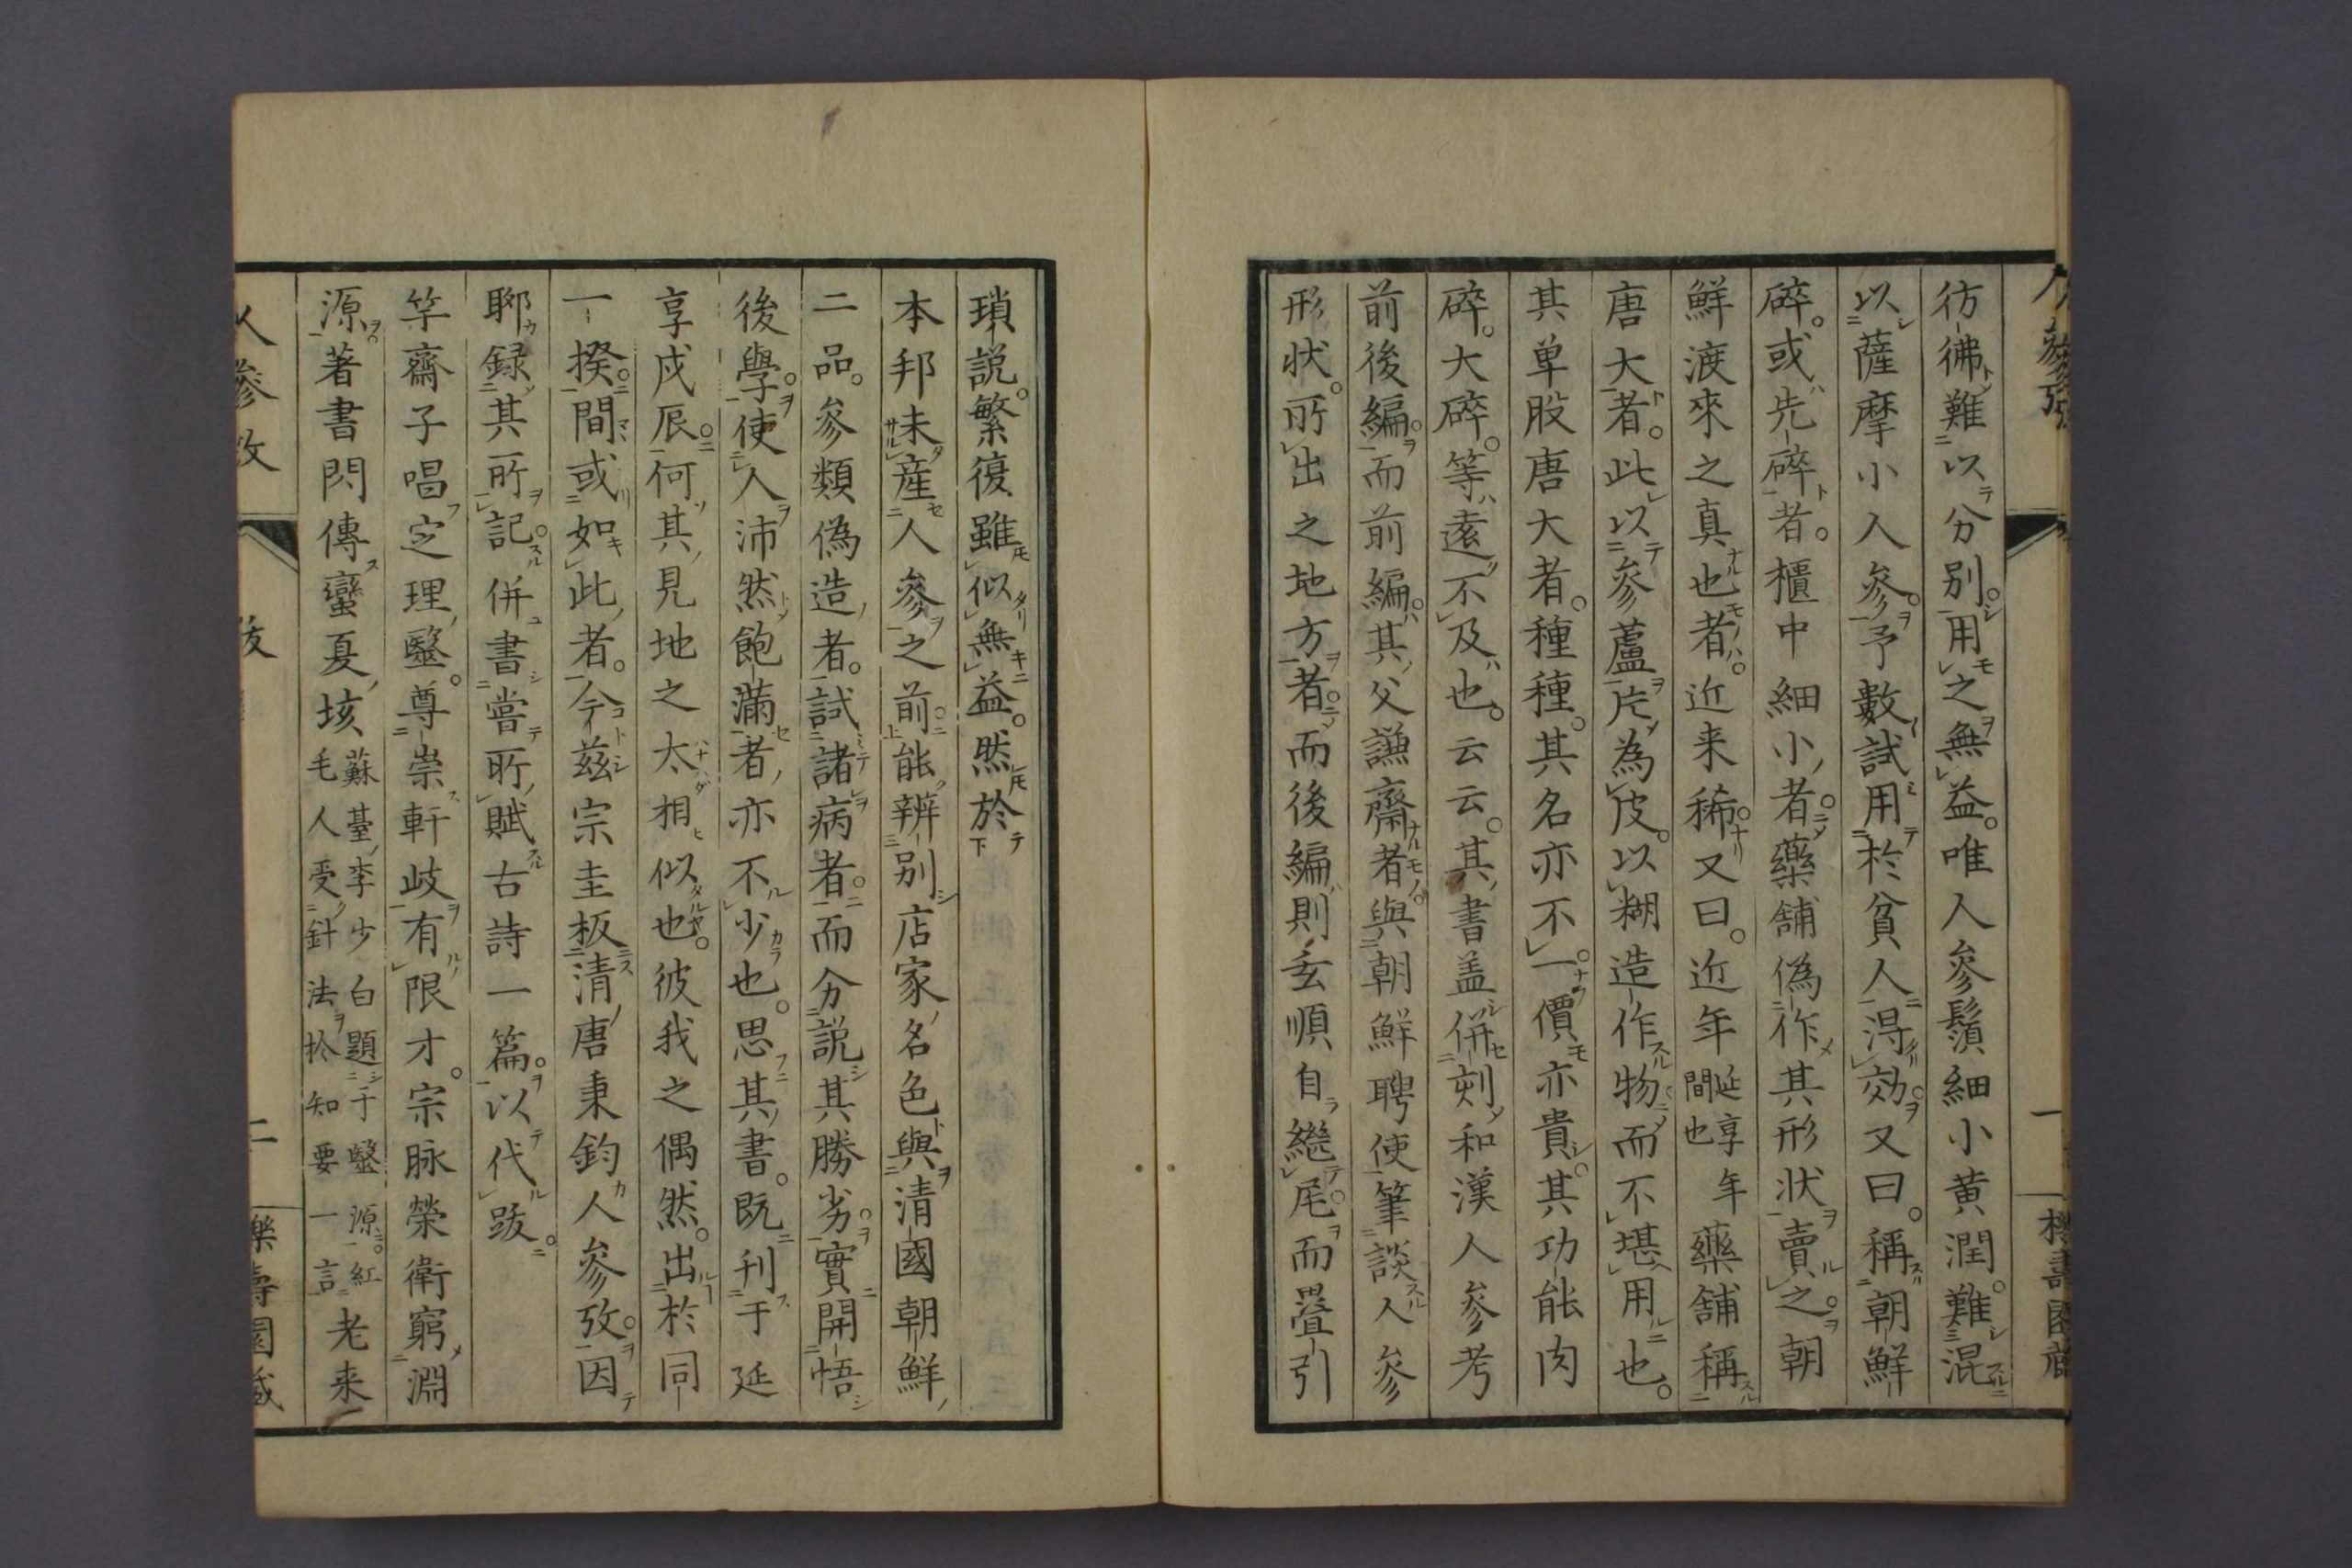 彷彿難以分别用之無益。唯人參鬚細小黄潤。難混
以薩摩小人參。予數試用於貧人淂効。又曰。稱朝鮮
碎。或先碎者。櫃中細小者。藥舗偽作其形狀賣之。朝
鮮渡來之真也者。近来稀。又曰。近年延享年間也藥舗稱
唐大者。此以參蘆片為皮。以糊造作物而不堪用也。
其单股唐大者。種種。其名亦不一。價亦貴。其功能肉
碎。大碎。等遠不及也。云云。其書盖併刻和漢人參考
前後編。而前編其父謙齋者。與朝鮮聘使筆談人參
形狀。所出之地方者。而後編則玄順自繼尾。而畳引
瑣説。繁復雖似無益。然於
本邦未產人參之前。能辨别店家名色與清國朝鮮
二品。參類偽造者。試諸病者。而分説其勝劣。實開悟
後學。使人沛然飽滿者亦不少也。思其書。既刊于延
享戊辰。何其見地之太相似也。彼我之偶然。出於同
一揆。間或如此者。今茲宗圭板清唐秉鈞人參攷。因
聊録其所記。併書嘗所賦古詩一篇。以代跋。
竿齋子唱定理醫。尊崇軒岐有限才。宗脉榮衛窮淵
源。著書閃傳蠻夏垓蘇臺李少白題于醫源。紅毛人受針法扵知要一言老来
人參攷
跋
二
樂壽園藏